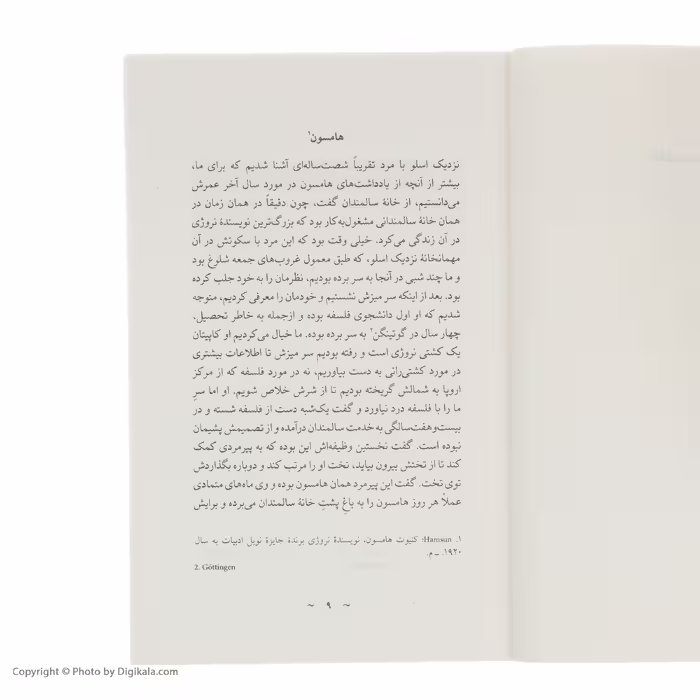 هامسون۱
نزدیک اسلو با مرد تقریباً شصت‌ساله‌ای آشنا شدیم که برای ما،
بیشتر از آنچه از یادداشت‌های هامسون در مورد سال آخر عمرش
می‌دانستیم، از خانهٔ سالمندان گفت، چون دقیقاً در همان زمان در
همان خانهٔ سالمندانی مشغول‌به‌کار بود که بزرگ‌ترین نویسندهٔ نروژی
در آن زندگی می‌کرد. خیلی وقت بود که این مرد با سکوتش در آن
مهمانخانهٔ نزدیک اسلو، که طبق معمول غروب‌های جمعه شلوغ بود
و ما چند شبی در آنجا به سر برده بودیم، نظرمان را به خود جلب کرده
بود. بعد از اینکه سر میزش نشستیم و خودمان را معرفی کردیم، متوجه
شدیم که او اول دانشجوی فلسفه بوده و ازجمله به خاطر تحصیل،
چهار سال در گوتینگن۲ به سر برده بوده. ما خیال می‌کردیم او کاپیتان
یک کشتی نروژی است و رفته بودیم سر میزش تا اطلاعات بیشتری
در مورد کشتی‌رانی به دست بیاوریم، نه در مورد فلسفه که از مرکز
اروپا به شمالش گریخته بودیم تا از شرش خلاص شویم. او اما سرِ
ما را با فلسفه درد نیاورد و گفت یک‌شبه دست از فلسفه شسته و در
بیست‌وهفت‌سالگی به‌خدمت سالمندان درآمده و از تصمیمش پشیمان
نبوده است. گفت نخستین وظیفه‌اش این بوده که به پیرمردی کمک
کند تا از تختش بیرون بیاید، تخت او را مرتب کند و دوباره بگذاردش
توی تخت. گفت این پیرمرد همان هامسون بوده و وی ماه‌های متمادی
عملاً هر روز هامسون را به باغِ پشتِ خانهٔ سالمندان می‌برده و برایش
۱. Hamsun: کنوت هامسون، نویسندهٔ نروژی برندهٔ جایزهٔ نوبل ادبیات به سال
۱۹۲۰. ــ م.
2. Göttingen
~ ۹ ~
Copyright © Photo by Digikala.com